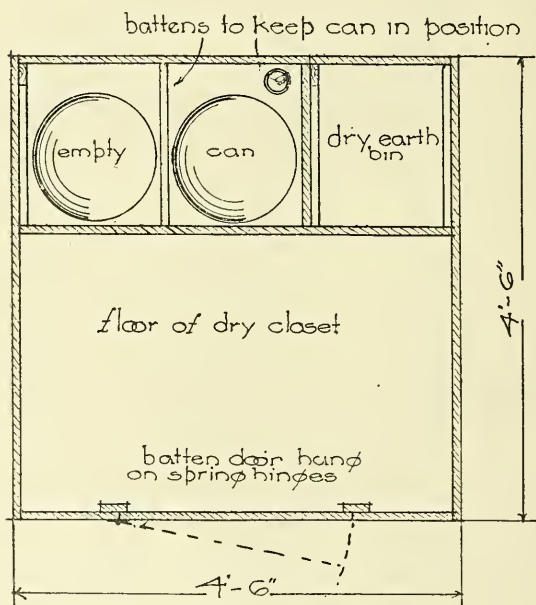 battens to keep can in position
empty
can
dry earth
bin
floor of dry closet
4'-6"
batten door hung
on spring hinges
4'-6"